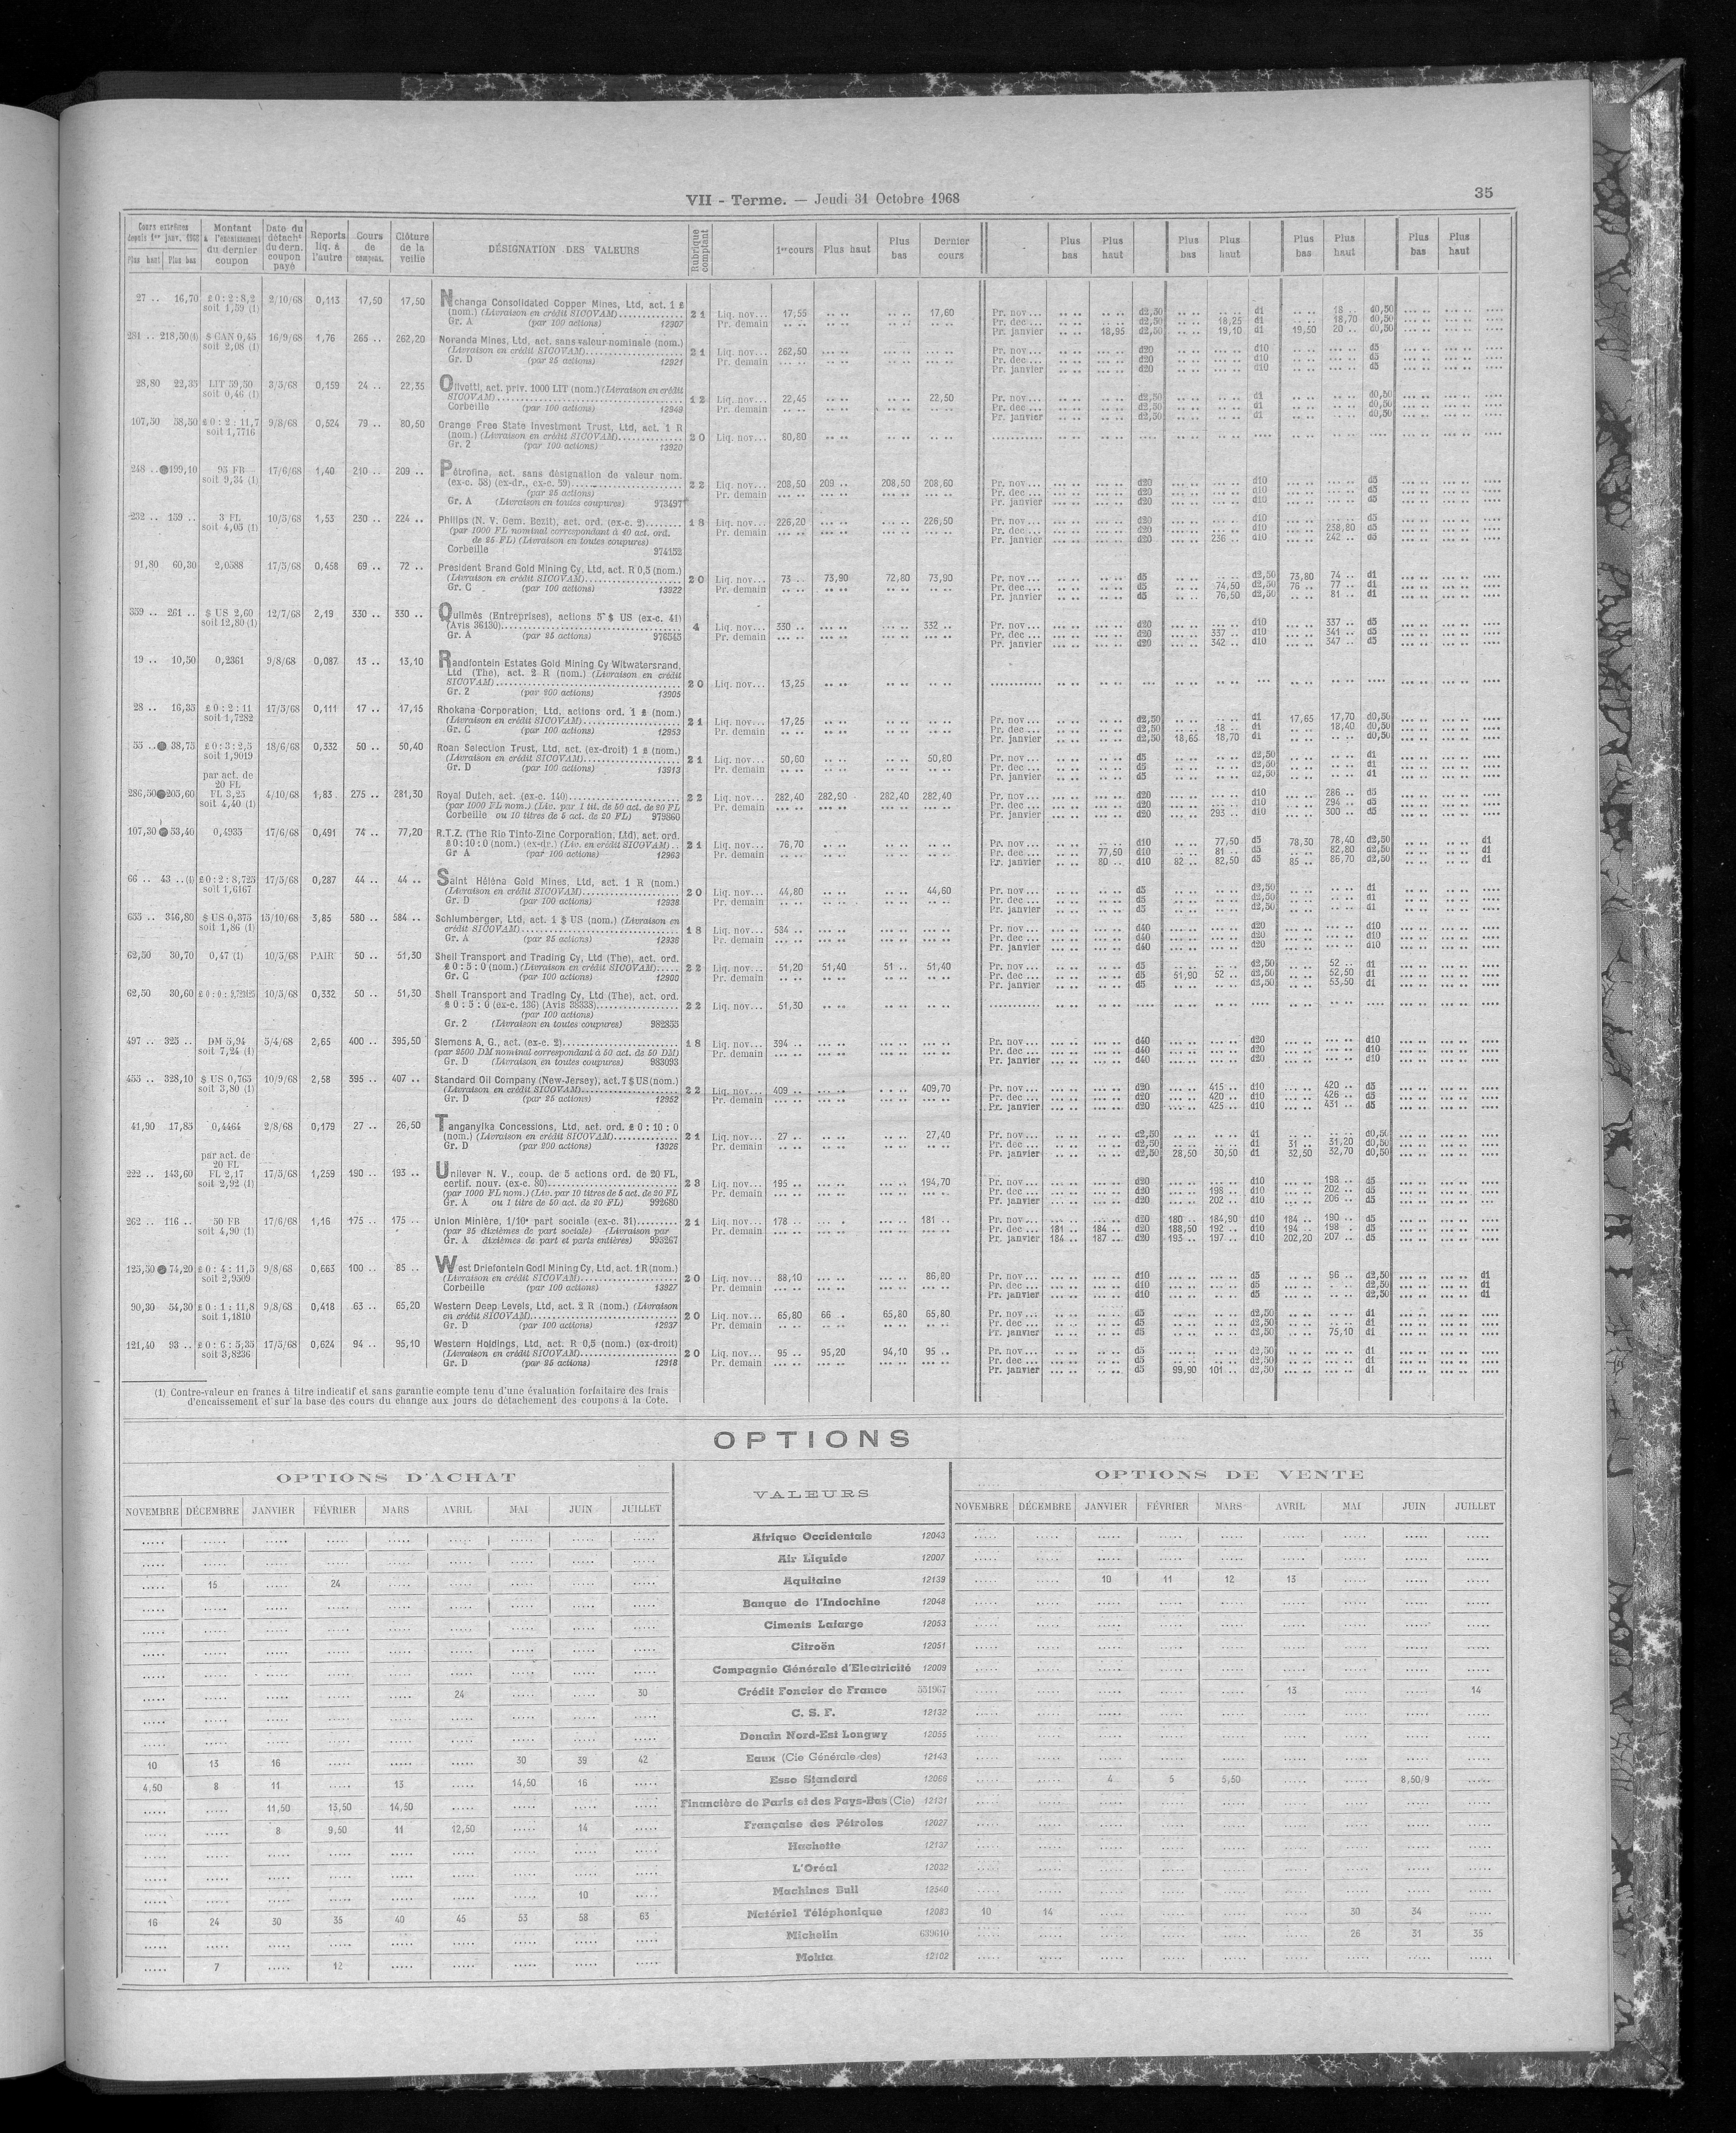 VII - Terme. — Jeudi 31 Octobre 1968
35
Cours extrêmes depuis 1er janv. 1968 Plus haut Plus bas | Montant à l'encaissement du dernier coupon | Date du détacht du dern. coupon payé | Reports liq. à l'autre | Cours de compens. | Clôture de la veille | DÉSIGNATION DES VALEURS | Rubrique comptant | 1er cours | Plus haut | Plus bas | Dernier cours | Plus bas | Plus haut | Plus bas | Plus haut | Plus bas | Plus haut | Plus bas | Plus haut
27 .. 16,70 £ 0 : 2 : 8,2 2/10/68 0,113 17,50 17,50 Nchanga Consolidated Copper Mines, Ltd, act. 1 £
soit 1,59 (1) (nom.) (Livraison en crédit SICOVAM) 21 Liq. nov... 17,55 17,60 Pr. nov ... d2,50 d1 18 .. d0,50
Gr. A (par 100 actions) 12907 Pr. demain Pr. dec ... d2,50 18,25 d1 18,70 d0,50
Pr. janvier 18,95 d2,50 19,10 d1 19,50 20 .. d0,50
281 .. 218,50(1) $ CAN 0,45 16/9/68 1,76 265 .. 262,20 Noranda Mines, Ltd, act. sans valeur nominale (nom.)
soit 2,08 (1) (Livraison en crédit SICOVAM) 21 Liq. nov... 262,50 Pr. nov ... d20 d10 d5
Gr. D (par 25 actions) 12921 Pr. demain Pr. dec ... d20 d10 d5
Pr. janvier d20 d10 d5
28,80 22,35 LIT 59,50 3/5/68 0,159 24 .. 22,35 Olivetti, act. priv. 1000 LIT (nom.) (Livraison en crédit
soit 0,46 (1) SICOVAM) 12 Liq. nov... 22,45 22,50 Pr. nov ... d2,50 d1 d0,50
Corbeille (par 100 actions) 12949 Pr. demain Pr. dec ... d2,50 d1 d0,50
Pr. janvier d2,50 d1 d0,50
107,50 58,50 £ 0 : 2 : 11,7 9/8/68 0,524 79 .. 80,50 Orange Free State Investment Trust, Ltd, act. 1 R
soit 1,7716 (nom.) (Livraison en crédit SICOVAM) 20 Liq. nov... 80,80
Gr. 2 (par 100 actions) 13920
248 .. 199,10 95 FB 17/6/68 1,40 210 .. 209 .. Pétrofina, act. sans désignation de valeur nom.
soit 9,34 (1) (ex-c. 58) (ex-dr., ex-c. 59) 22 Liq. nov... 208,50 209 .. 208,50 208,60 Pr. nov ... d20 d10 d5
(par 25 actions) Pr. demain Pr. dec ... d20 d10 d5
Gr. A (Livraison en toutes coupures) 973497 Pr. janvier d20 d10 d5
232 .. 139 .. 3 FL 10/5/68 1,53 230 .. 224 .. Philips (N. V. Gem. Bezit), act. ord. (ex-c. 2) 18 Liq. nov... 226,20 226,50 Pr. nov ... d20 d10 d5
soit 4,05 (1) (par 1000 FL nominal correspondant à 40 act. ord. Pr. demain Pr. dec ... d20 d10 238,80 d5
de 25 FL) (Livraison en toutes coupures) Pr. janvier d20 236 .. d10 242 .. d5
Corbeille 974152
91,80 60,30 2,0588 17/5/68 0,458 69 .. 72 .. President Brand Gold Mining Cy, Ltd, act. R 0,5 (nom.)
(Livraison en crédit SICOVAM) 20 Liq. nov... 73 .. 73,90 72,80 73,90 Pr. nov ... d5 d2,50 73,80 74 .. d1
Gr. C (par 100 actions) 13922 Pr. demain Pr. dec ... d5 74,50 d2,50 76 .. 77 .. d1
Pr. janvier d5 76,50 d2,50 81 .. d1
359 .. 261 .. $ US 2,60 12/7/68 2,19 330 .. 330 .. Quilmès (Entreprises), actions 5 $ US (ex-c. 41)
soit 12,80 (1) (Avis 36130) 4 Liq. nov... 330 .. 332 .. Pr. nov ... d20 d10 337 .. d5
Gr. A (par 25 actions) 976545 Pr. demain Pr. dec ... d20 337 .. d10 341 .. d5
Pr. janvier d20 342 .. d10 347 .. d5
19 .. 10,50 0,2361 9/8/68 0,087 13 .. 13,10 Randfontein Estates Gold Mining Cy Witwatersrand,
Ltd (The), act. 2 R (nom.) (Livraison en crédit
SICOVAM) 20 Liq. nov... 13,25
Gr. 2 (par 200 actions) 13905
28 .. 16,35 £ 0 : 2 : 11 17/5/68 0,111 17 .. 17,15 Rhokana Corporation, Ltd, actions ord. 1 £ (nom.)
soit 1,7282 (Livraison en crédit SICOVAM) 21 Liq. nov... 17,25 Pr. nov ... d2,50 d1 17,65 17,70 d0,50
Gr. C (par 100 actions) 12953 Pr. demain Pr. dec ... d2,50 18 .. d1 18,40 d0,50
Pr. janvier d2,50 18,65 18,70 d1 d0,50
55 .. 38,75 £ 0 : 3 : 2,5 18/6/68 0,332 50 .. 50,40 Roan Selection Trust, Ltd, act. (ex-droit) 1 £ (nom.)
soit 1,9019 (Livraison en crédit SICOVAM) 21 Liq. nov... 50,60 50,80 Pr. nov ... d5 d2,50 d1
Gr. D (par 100 actions) 13913 Pr. demain Pr. dec ... d5 d2,50 d1
Pr. janvier d5 d2,50 d1
par act. de
20 FL
286,50 205,60 FL 3,25 4/10/68 1,83 275 .. 281,30 Royal Dutch, act. (ex-c. 140) 22 Liq. nov... 282,40 282,90 282,40 282,40 Pr. nov ... d20 d10 286 .. d5
soit 4,40 (1) (par 1000 FL nom.) (Liv. par 1 tit. de 50 act. de 20 FL Pr. demain Pr. dec ... d20 d10 294 .. d5
Corbeille ou 10 titres de 5 act. de 20 FL) 979860 Pr. janvier d20 293 .. d10 300 .. d5
107,30 53,40 0,4935 17/6/68 0,491 74 .. 77,20 R.T.Z. (The Rio Tinto-Zinc Corporation, Ltd), act. ord.
£ 0 : 10 : 0 (nom.) (ex-dr.) (Liv. en crédit SICOVAM) .. 21 Liq. nov... 76,70 Pr. nov ... d10 77,50 d5 78,30 78,40 d2,50 d1
Gr A (par 100 actions) 12963 Pr. demain Pr. dec ... 77,50 d10 81 .. d5 82,80 d2,50 d1
Pr. janvier 80 .. d10 82 .. 82,50 d5 85 .. 86,70 d2,50 d1
66 .. 43 ..(1) £ 0 : 2 : 8,725 17/5/68 0,287 44 .. 44 .. Saint Héléna Gold Mines, Ltd, act. 1 R (nom.)
soit 1,6167 (Livraison en crédit SICOVAM) 20 Liq. nov... 44,80 44,60 Pr. nov ... d5 d2,50 d1
Gr. D (par 100 actions) 12938 Pr. demain Pr. dec ... d5 d2,50 d1
Pr. janvier d5 d2,50 d1
655 .. 346,80 $ US 0,375 15/10/68 3,85 580 .. 584 .. Schlumberger, Ltd, act. 1 $ US (nom.) (Livraison en
soit 1,86 (1) crédit SICOVAM) 18 Liq. nov... 584 .. Pr. nov ... d40 d20 d10
Gr. A (par 25 actions) 12936 Pr. demain Pr. dec ... d40 d20 d10
Pr. janvier d40 d20 d10
62,50 30,70 0,47 (1) 10/5/68 PAIR 50 .. 51,30 Shell Transport and Trading Cy, Ltd (The), act. ord.
£ 0 : 5 : 0 (nom.) (Livraison en crédit SICOVAM) 22 Liq. nov... 51,20 51,40 51 .. 51,40 Pr. nov ... d5 d2,50 52 .. d1
Gr. C (par 100 actions) 12900 Pr. demain Pr. dec ... d5 51,90 52 .. d2,50 52,50 d1
Pr. janvier d5 d2,50 53,50 d1
62,50 30,60 10/5/68 0,332 50 .. 51,30 Shell Transport and Trading Cy, Ltd (The), act. ord.
£ 0 : 5 : 0 (ex-c. 136) (Avis 38338) 22 Liq. nov... 51,30
(par 100 actions)
Gr. 2 (Livraison en toutes coupures) 982855
497 .. 325 .. DM 5,94 5/4/68 2,65 400 .. 395,50 Siemens A. G., act. (ex-c. 2) 18 Liq. nov... 394 .. Pr. nov ... d40 d20 d10
soit 7,24 (1) (par 2500 DM nominal correspondant à 50 act. de 50 DM) Pr. demain Pr. dec ... d40 d20 d10
Gr. D (Livraison en toutes coupures) 983093 Pr. janvier d40 d20 d10
455 .. 328,10 $ US 0,765 10/9/68 2,58 395 .. 407 .. Standard Oil Company (New-Jersey), act. 7 $ US (nom.)
soit 3,80 (1) (Livraison en crédit SICOVAM) 22 Liq. nov... 409 .. 409,70 Pr. nov ... d20 415 .. d10 420 .. d5
Gr. D (par 25 actions) 12952 Pr. demain Pr. dec ... d20 420 .. d10 426 .. d5
Pr. janvier d20 425 .. d10 431 .. d5
41,90 17,85 0,4464 2/8/68 0,179 27 .. 26,50 Tanganyika Concessions, Ltd, act. ord. £ 0 : 10 : 0
(nom.) (Livraison en crédit SICOVAM) 21 Liq. nov... 27 .. 27,40 Pr. nov ... d2,50 d1 d0,50
Gr. D (par 200 actions) 13926 Pr. demain Pr. dec ... d2,50 d1 31 .. 31,20 d0,50
Pr. janvier d2,50 28,50 30,50 d1 32,50 32,70 d0,50
par act. de
20 FL
222 .. 143,60 FL 2,17 17/5/68 1,259 190 .. 193 .. Unilever N. V., coup. de 5 actions ord. de 20 FL,
soit 2,92 (1) certif. nouv. (ex-c. 80) 23 Liq. nov... 195 .. 194,70 Pr. nov ... d20 d10 198 .. d5
(par 1000 FL nom.) (Liv. par 10 titres de 5 act. de 20 FL Pr. demain Pr. dec ... d20 198 .. d10 202 .. d5
Gr. A ou 1 titre de 50 act. de 20 FL) 992680 Pr. janvier d20 202 .. d10 206 .. d5
262 .. 116 .. 50 FB 17/6/68 1,16 175 .. 175 .. Union Minière, 1/10e part sociale (ex-c. 31) 21 Liq. nov... 178 .. 181 .. Pr. nov ... d20 180 .. 184,90 d10 184 .. 190 .. d5
soit 4,90 (1) (par 25 dixièmes de part sociale) (Livraison par Pr. demain Pr. dec ... 181 .. 184 .. d20 188,50 192 .. d10 194 .. 198 .. d5
Gr. A dixièmes de part et parts entières) 993267 Pr. janvier 184 .. 187 .. d20 193 .. 197 .. d10 202,20 207 .. d5
125,50 74,20 £ 0 : 4 : 11,5 9/8/68 0,663 100 .. 85 .. West Driefontein Godl Mining Cy, Ltd, act. 1 R (nom.)
soit 2,9509 (Livraison en crédit SICOVAM) 20 Liq. nov... 88,10 86,80 Pr. nov ... d10 d5 96 .. d2,50 d1
Corbeille (par 100 actions) 13927 Pr. demain Pr. dec ... d10 d5 d2,50 d1
Pr. janvier d10 d5 d2,50 d1
90,30 54,30 £ 0 : 1 : 11,8 9/8/68 0,418 63 .. 65,20 Western Deep Levels, Ltd, act. 2 R (nom.) (Livraison
soit 1,1810 en crédit SICOVAM) 20 Liq. nov... 65,80 66 .. 65,80 65,80 Pr. nov ... d5 d2,50 d1
Gr. D (par 100 actions) 12937 Pr. demain Pr. dec ... d5 d2,50 d1
Pr. janvier d5 d2,50 75,10 d1
121,40 93 .. £ 0 : 6 : 5,35 17/5/68 0,624 94 .. 95,10 Western Holdings, Ltd, act. R 0,5 (nom.) (ex-droit)
soit 3,8236 (Livraison en crédit SICOVAM) 20 Liq. nov... 95 .. 95,20 94,10 95 .. Pr. nov ... d5 d2,50 d1
Gr. D (par 25 actions) 12918 Pr. demain Pr. dec ... d5 d2,50 d1
Pr. janvier d5 99,90 101 .. d2,50 d1
(1) Contre-valeur en francs à titre indicatif et sans garantie compte tenu d'une évaluation forfaitaire des frais
d'encaissement et sur la base des cours du change aux jours de détachement des coupons à la Cote.
OPTIONS
OPTIONS D'ACHAT
VALEURS
OPTIONS DE VENTE
NOVEMBRE DÉCEMBRE JANVIER FÉVRIER MARS AVRIL MAI JUIN JUILLET
NOVEMBRE DÉCEMBRE JANVIER FÉVRIER MARS AVRIL MAI JUIN JUILLET
..... ..... ..... ..... ..... ..... ..... ..... ..... Afrique Occidentale 12043 ..... ..... ..... ..... ..... ..... ..... ..... .....
..... ..... ..... ..... ..... ..... ..... ..... ..... Air Liquide 12007 ..... ..... ..... ..... ..... ..... ..... ..... .....
..... 15 ..... 24 ..... ..... ..... ..... ..... Aquitaine 12139 ..... ..... 10 11 12 13 ..... ..... .....
..... ..... ..... ..... ..... ..... ..... ..... ..... Banque de l'Indochine 12048 ..... ..... ..... ..... ..... ..... ..... ..... .....
..... ..... ..... ..... ..... ..... ..... ..... ..... Ciments Lafarge 12053 ..... ..... ..... ..... ..... ..... ..... ..... .....
..... ..... ..... ..... ..... ..... ..... ..... ..... Citroën 12051 ..... ..... ..... ..... ..... ..... ..... ..... .....
..... ..... ..... ..... ..... ..... ..... ..... ..... Compagnie Générale d'Electricité 12009 ..... ..... ..... ..... ..... ..... ..... ..... .....
..... ..... ..... ..... ..... 24 ..... ..... 30 Crédit Foncier de France 531967 ..... ..... ..... ..... ..... 13 ..... ..... 14
..... ..... ..... ..... ..... ..... ..... ..... ..... C. S. F. 12132 ..... ..... ..... ..... ..... ..... ..... ..... .....
..... ..... ..... ..... ..... ..... ..... ..... ..... Denain Nord-Est Longwy 12055 ..... ..... ..... ..... ..... ..... ..... ..... .....
10 13 16 ..... ..... ..... 30 39 42 Eaux (Cie Générale des) 12143 ..... ..... ..... ..... ..... ..... ..... ..... .....
4,50 8 11 ..... 13 ..... 14,50 16 ..... Esso Standard 12066 ..... ..... 4 5 5,50 ..... ..... 8,50/9 .....
..... ..... 11,50 13,50 14,50 ..... ..... ..... ..... Financière de Paris et des Pays-Bas (Cie) 12131 ..... ..... ..... ..... ..... ..... ..... ..... .....
..... ..... 8 9,50 11 12,50 ..... 14 ..... Française des Pétroles 12027 ..... ..... ..... ..... ..... ..... ..... ..... .....
..... ..... ..... ..... ..... ..... ..... ..... ..... Hachette 12137 ..... ..... ..... ..... ..... ..... ..... ..... .....
..... ..... ..... ..... ..... ..... ..... ..... ..... L'Oréal 12032 ..... ..... ..... ..... ..... ..... ..... ..... .....
..... ..... ..... ..... ..... ..... ..... 10 ..... Machines Bull 12540 ..... ..... ..... ..... ..... ..... ..... ..... .....
16 24 30 35 40 45 53 58 63 Matériel Téléphonique 12083 10 14 ..... ..... ..... ..... 30 34 .....
..... ..... ..... ..... ..... ..... ..... ..... ..... Michelin 639610 ..... ..... ..... ..... ..... ..... 26 31 35
..... 7 ..... 12 ..... ..... ..... ..... ..... Mokta 12102 ..... ..... ..... ..... ..... ..... ..... ..... .....